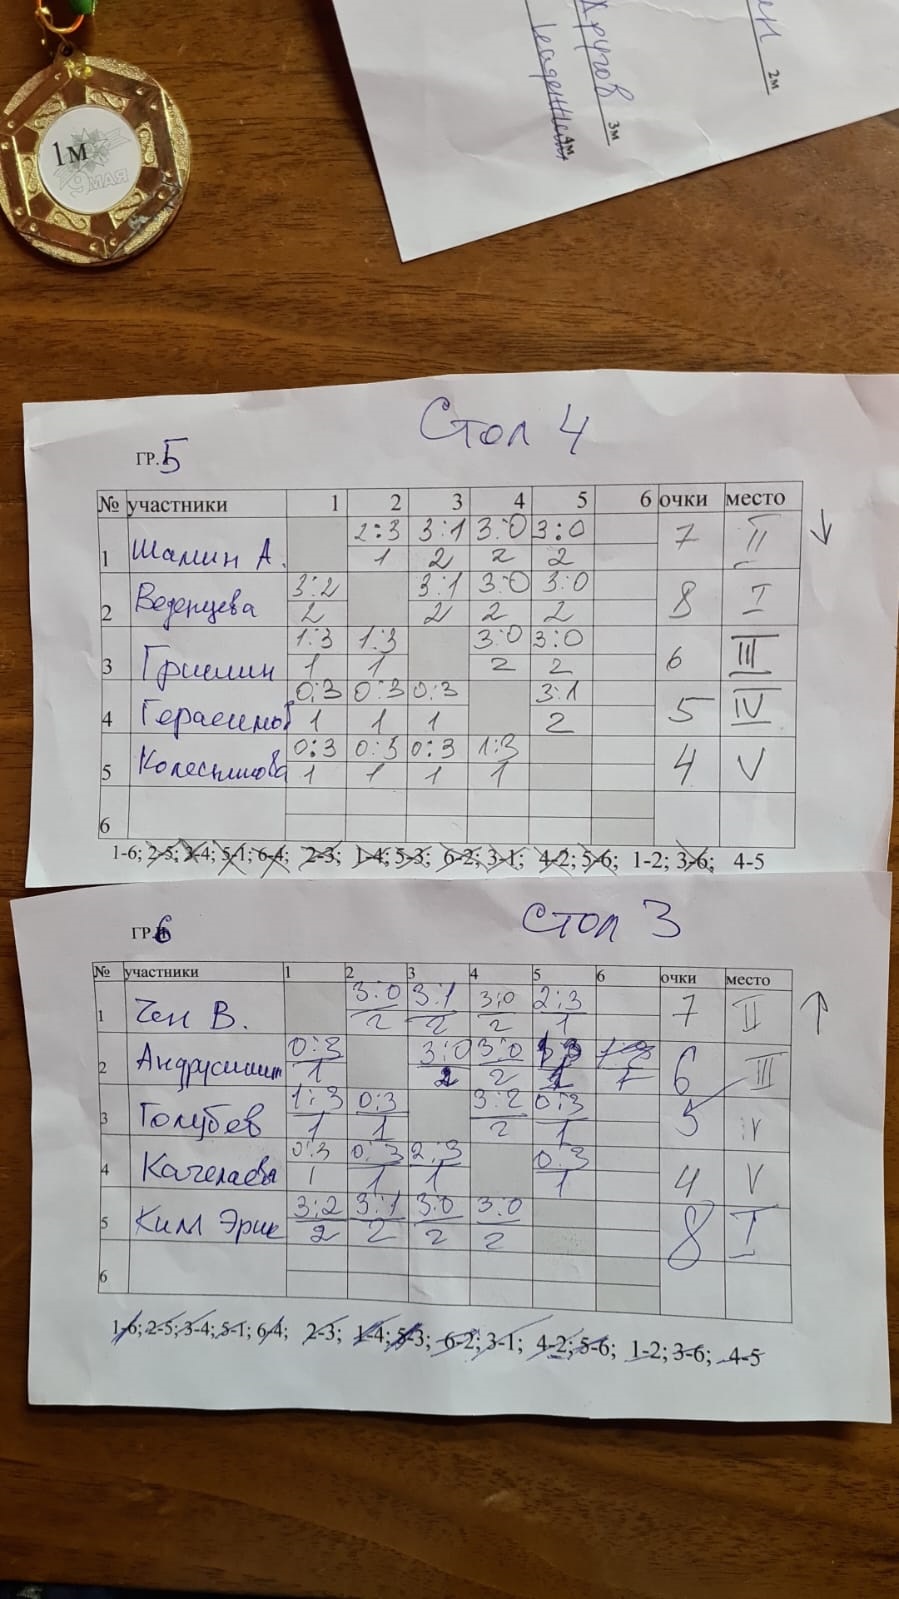 1м
9 МАЯ
2м
Другов 3м
4м
Стол 4
ГР. 5
№ участники 1 2 3 4 5 6 очки место
1 Шамин А. 2:3 3:1 3:0 3:0 7 II
1 2 2 2
2 Веденцева 3:2 3:1 3:0 3:0 8 I
2 2 2 2
3 Гришин 1:3 1:3 3:0 3:0 6 III
1 1 2 2
4 Герасимов 0:3 0:3 0:3 3:1 5 IV
1 1 1 2
5 Колесникова 0:3 0:3 0:3 1:3 4 V
1 1 1 1
6
1-6; 2-5; 3-4; 5-1; 6-4; 2-3; 1-4; 5-3; 6-2; 3-1; 4-2; 5-6; 1-2; 3-6; 4-5
Стол 3
ГР. 6
№ участники 1 2 3 4 5 6 очки место
1 Чен В. 3:0 3:1 3:0 2:3 7 II
2 2 2 1
2 0:3 3:0 3:0 1:3 6 III
1 2 2 1
3 Голубев 1:3 0:3 3:2 0:3 5 IV
1 1 2 1
4 0:3 0:3 2:3 0:3 4 V
1 1 1 1
5 Ким Эрик 3:2 3:1 3:0 3:0 8 I
2 2 2 2
6
1-6; 2-5; 3-4; 5-1; 6-4; 2-3; 1-4; 5-3; 6-2; 3-1; 4-2; 5-6; 1-2; 3-6; 4-5